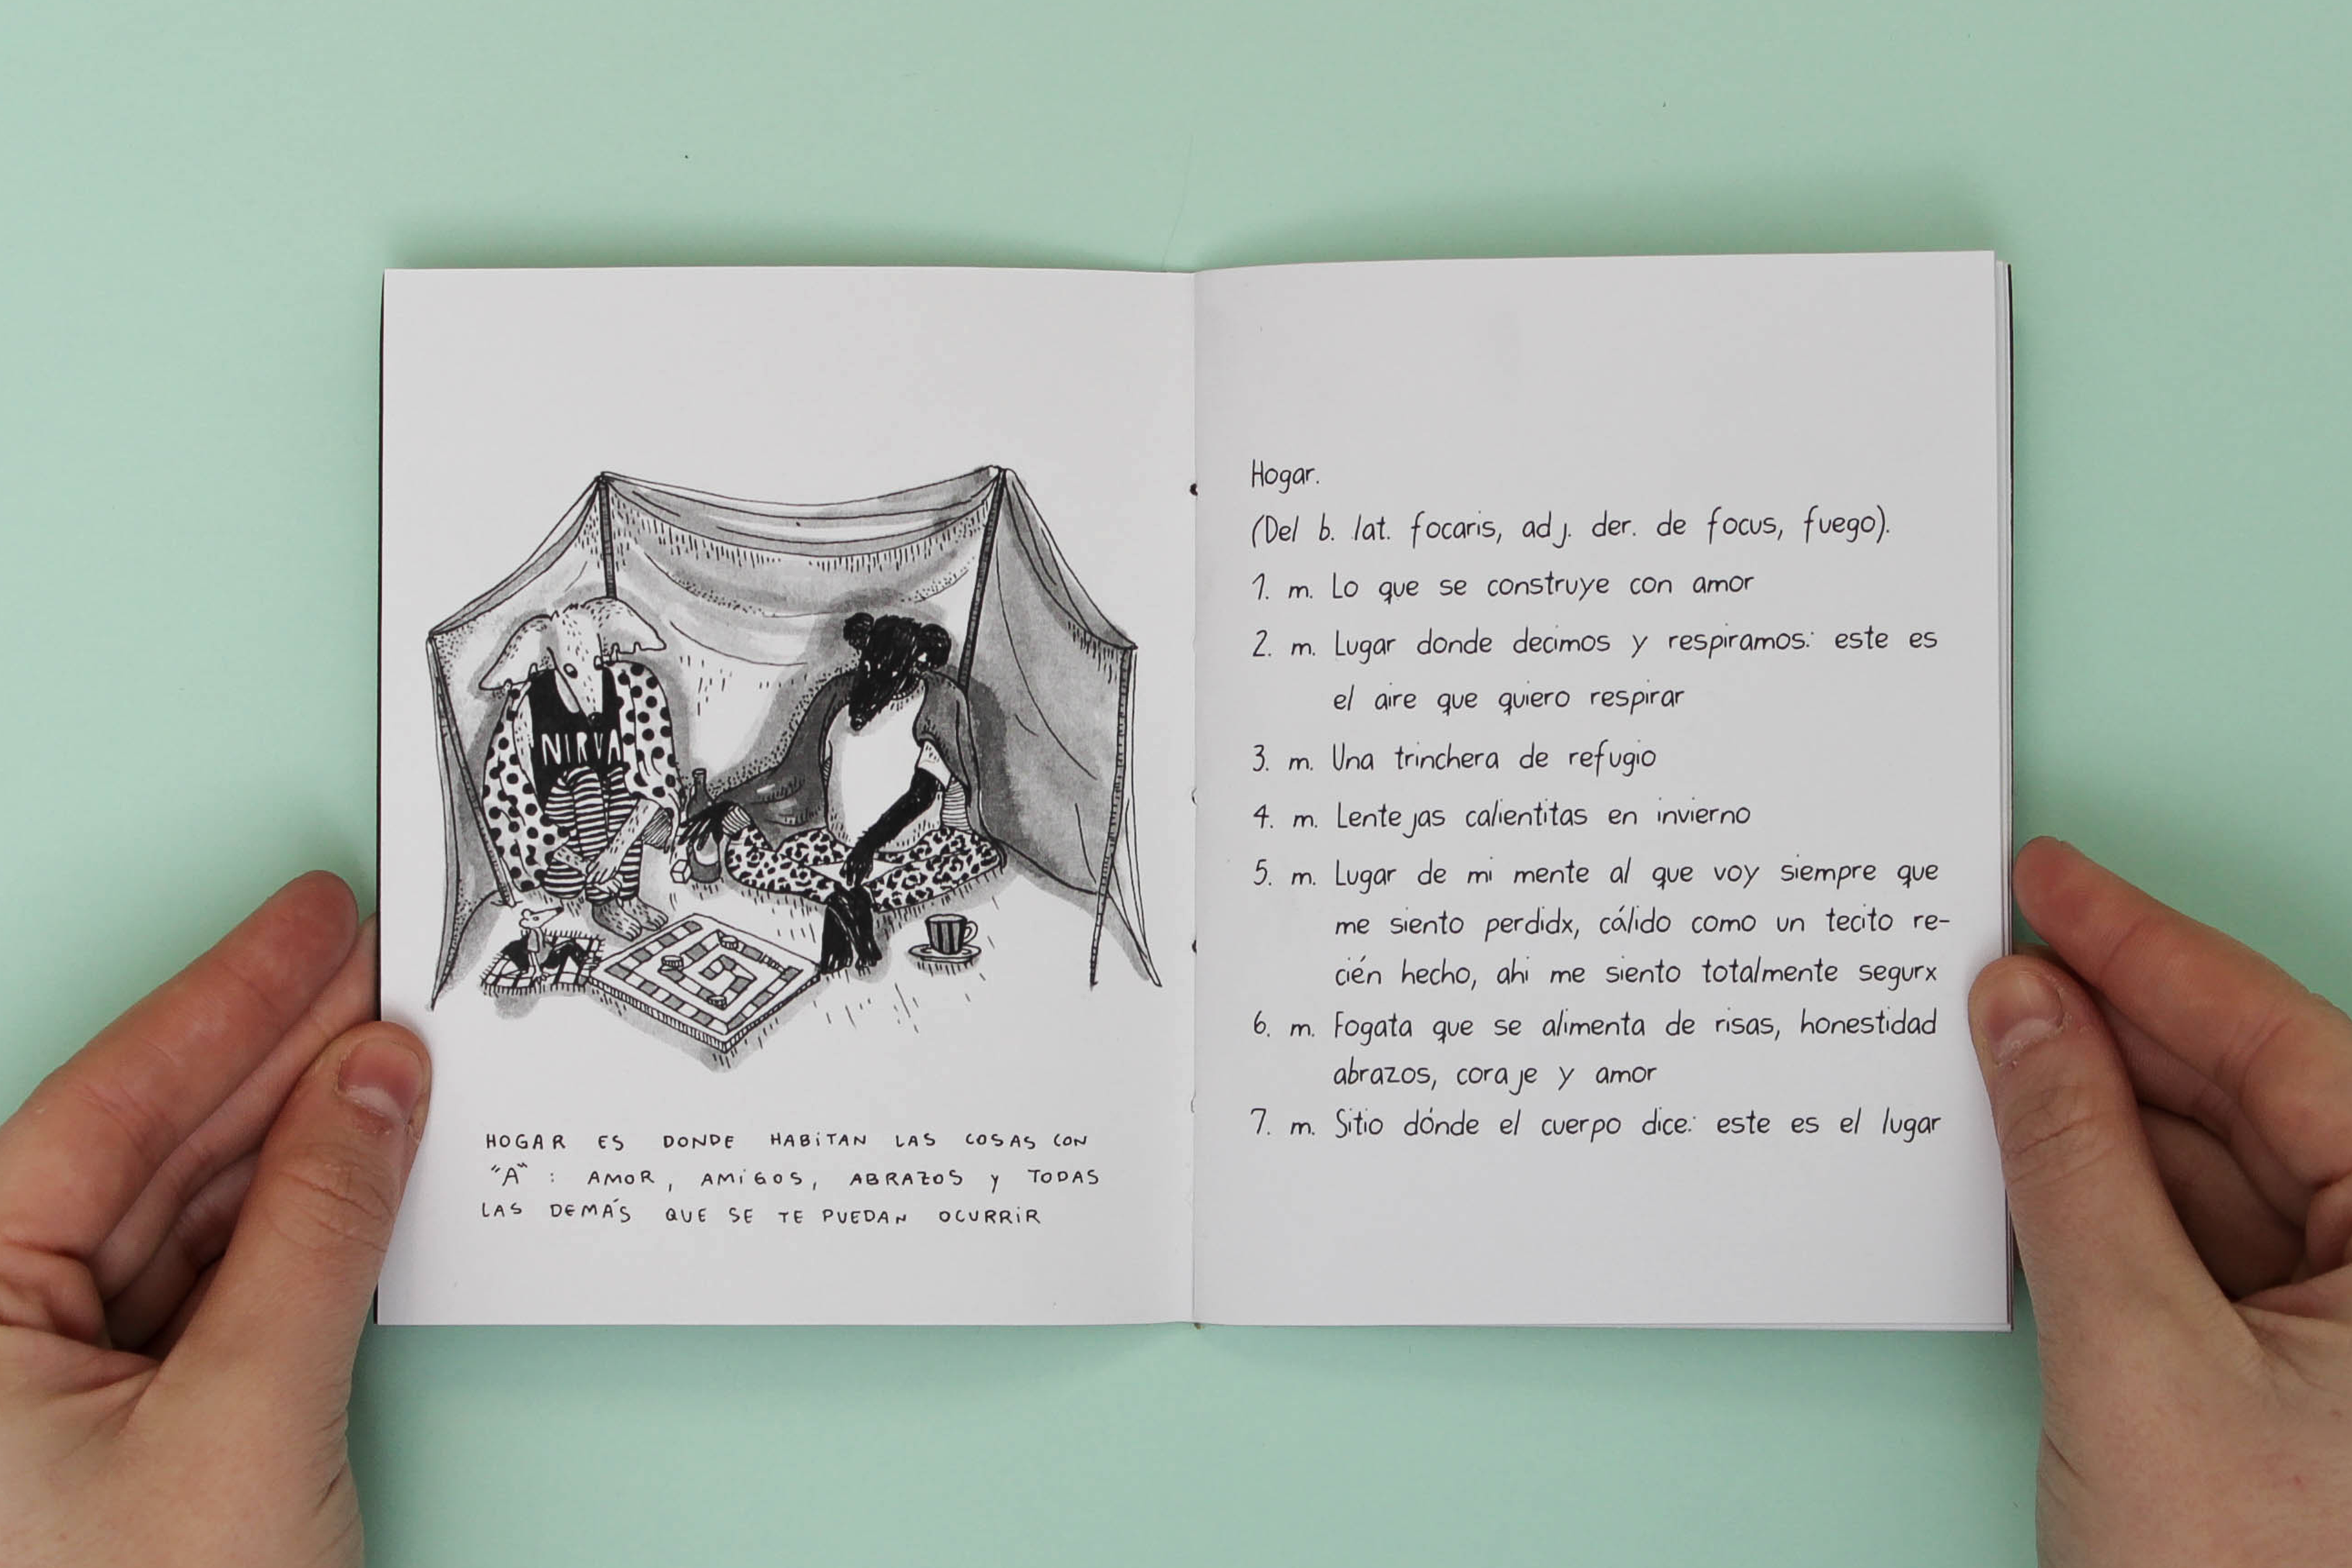 NIRVA
HOGAR ES DONDE HABITAN LAS COSAS CON
"A" : AMOR, AMIGOS, ABRAZOS Y TODAS
LAS DEMÁS QUE SE TE PUEDAN OCURRIR
Hogar.
(Del b. lat. focaris, adj. der. de focus, fuego).
1. m. Lo que se construye con amor
2. m. Lugar donde decimos y respiramos: este es
el aire que quiero respirar
3. m. Una trinchera de refugio
4. m. Lentejas calientitas en invierno
5. m. Lugar de mi mente al que voy siempre que
me siento perdidx, cálido como un tecito re-
cién hecho, ahi me siento totalmente segurx
6. m. Fogata que se alimenta de risas, honestidad
abrazos, coraje y amor
7. m. Sitio dónde el cuerpo dice: este es el lugar